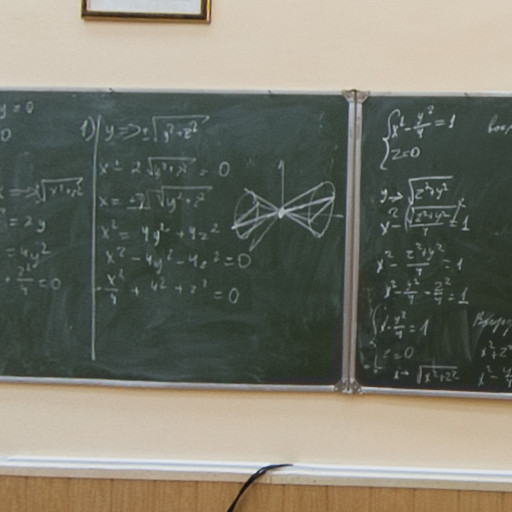 y = 0
0
= 2y
= 4y²
+ z²/4 = 0
1) y => ±√(y²+z²)
x ± 2√(y²+z²) = 0
x = ±2√(y²+z²)
x² = 4y² + 4z²
x² - 4y² - 4z² = 0
-x²/4 + y² + z² = 0
{ x² - y²/4 = 1
z = 0
y → √(z²+y²)
x² - (√(z²+y²))²/4 = 1
x² - (z²+y²)/4 = 1
x² - y²/4 - z²/4 = 1
{ x² - y²/4 = 1
z = 0
x → √(x²+z²)
x²+z²